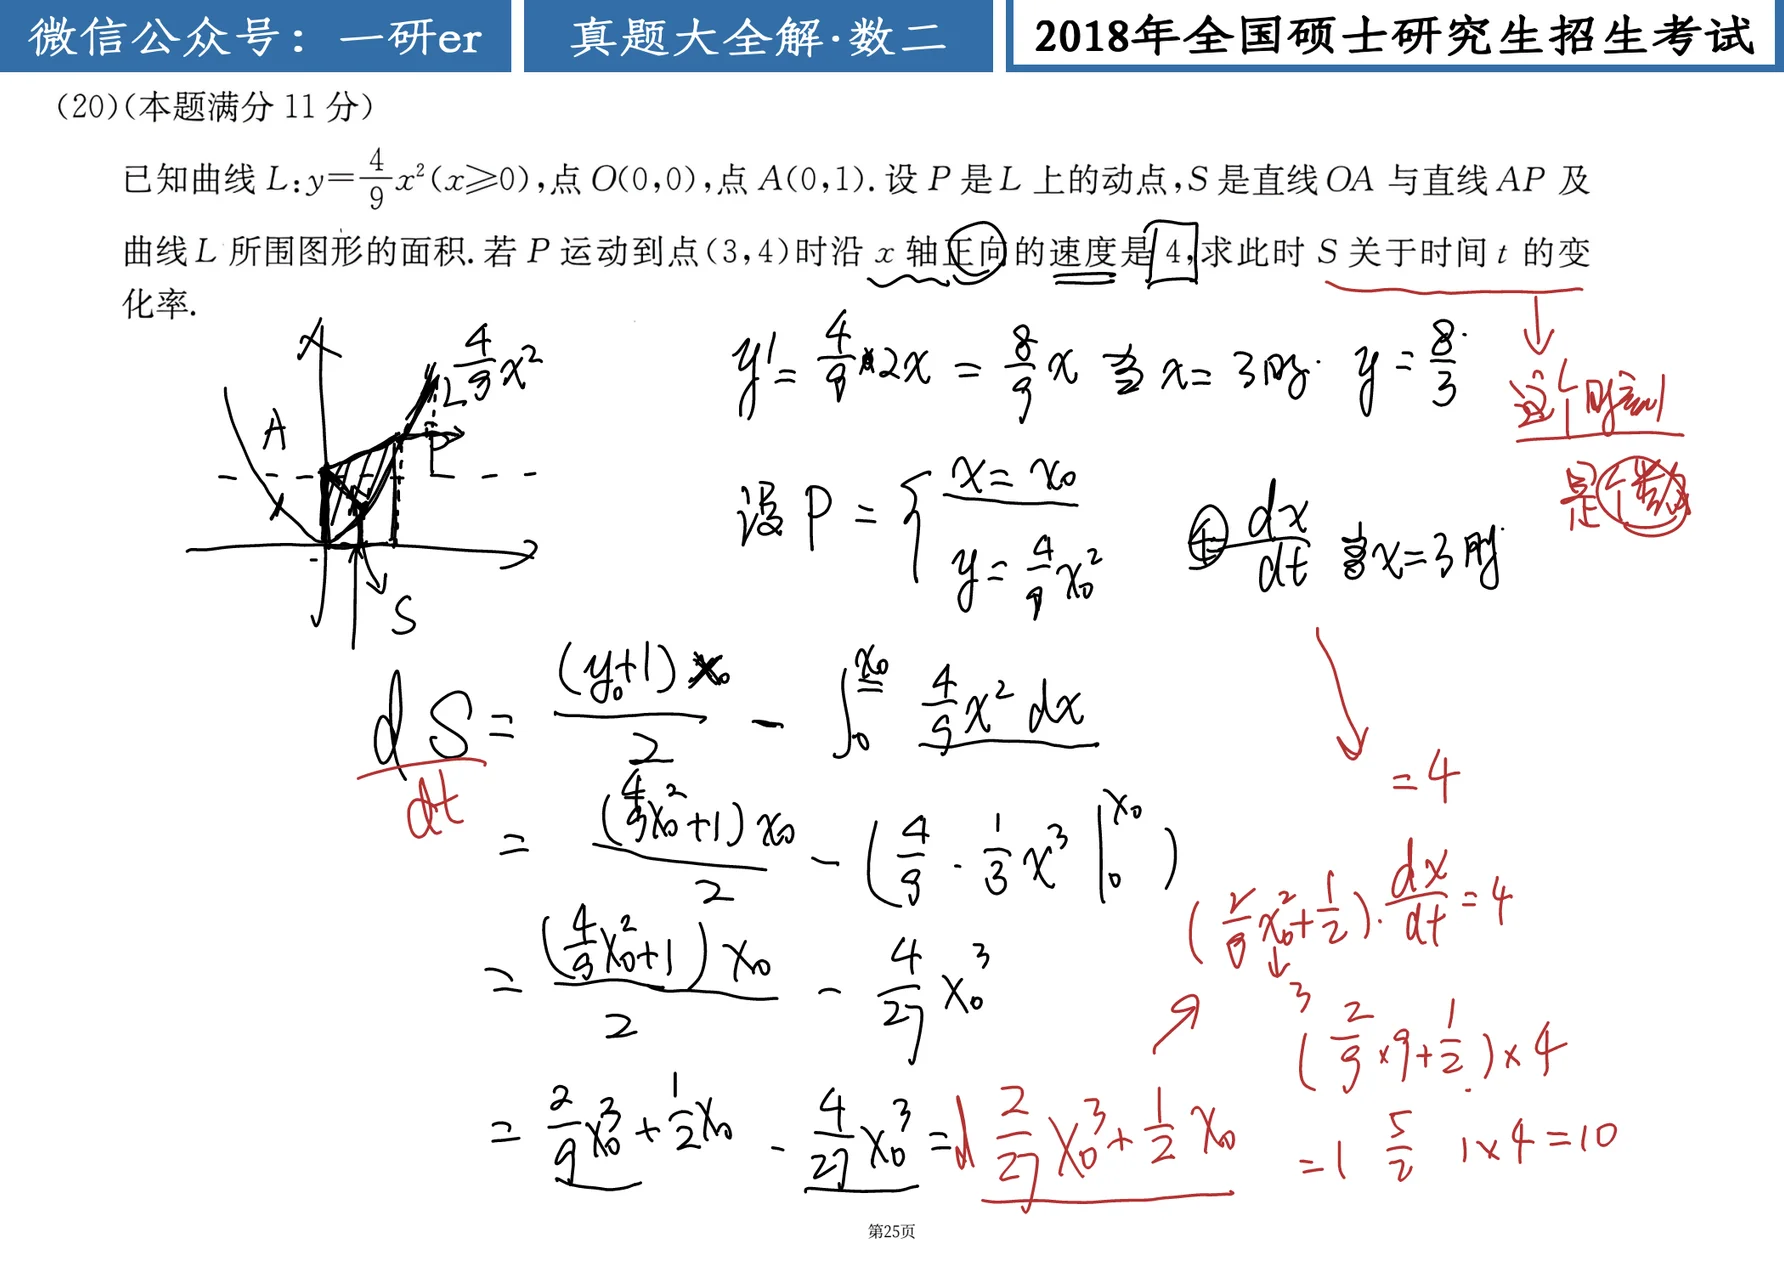 微信公众号：一研er 真题大全解·数二 2018年全国硕士研究生招生考试
(20)(本题满分 11 分)
已知曲线 L:y=4/9x²(x⩾0),点 O(0,0),点 A(0,1). 设 P 是 L 上的动点,S 是直线 OA 与直线 AP 及
曲线 L 所围图形的面积. 若 P 运动到点(3,4)时沿 x 轴正向的速度是 4,求此时 S 关于时间 t 的变
化率.
4/9 x²
L
A
P
S
y' = 4/9 · 2x = 8/9 x 当 x = 3时. y = 8/3.
这个时刻
是个数
设 P = { x = x₀
y = 4/9 x₀²
dx/dt 当x=3时
dS/dt = (y₀+1)x₀/2 - ∫₀^x₀ 4/9 x² dx
= 4
= (4/9x₀²+1)x₀/2 - (4/9 · 1/3 x³ |₀^x₀)
(2/9 x₀²+1/2)·dx/dt=4
3
= (4/9x₀²+1)x₀/2 - 4/27 x₀³
(2/9×9+1/2)×4
= 2/9x₀³+1/2x₀ - 4/27x₀³ = d 2/27 x₀³+1/2 x₀
=1 5/2 1×4=10
第25页